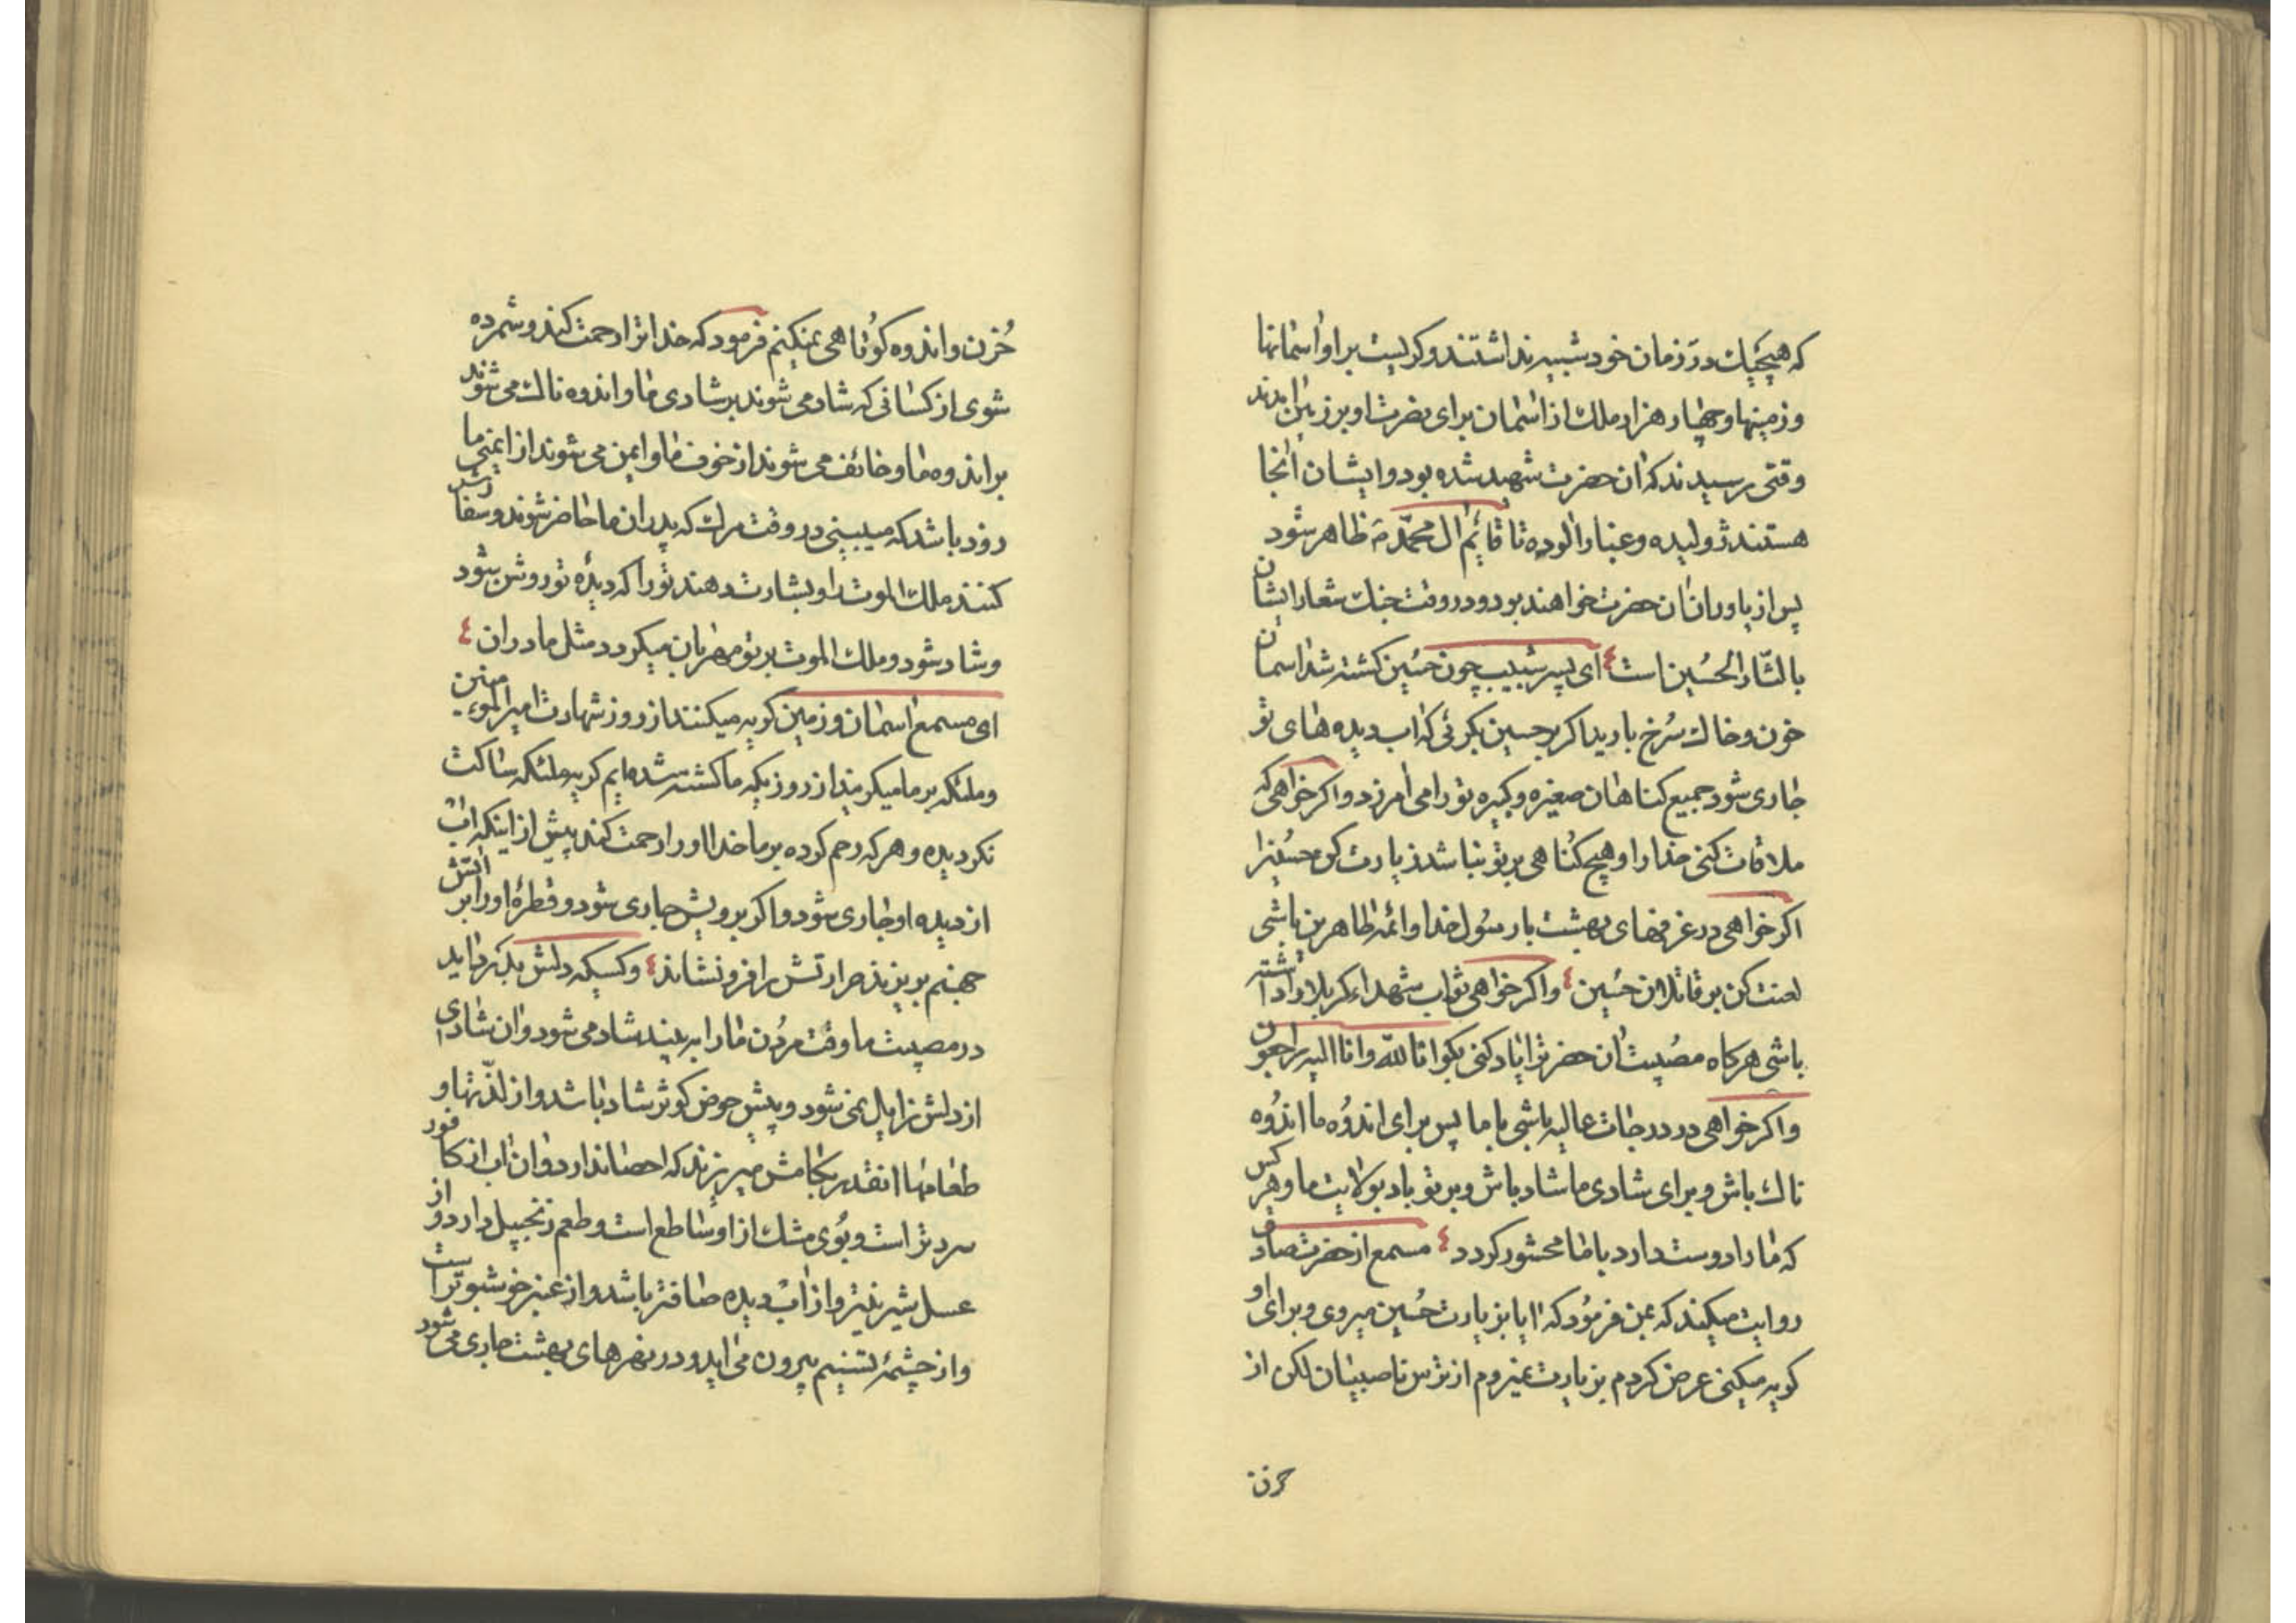 که هیچیك در زمان خود شبیه نداشتند و کریست بر او اسمانها
و زمینها و چهار هزار ملك از اسمان برای نصرت او بر زمین امدند
وقتی رسیدند که ان حضرت شهید شده بود و ایشان انجا
هستند ژولیده و غبار الوده تا قائم ال محمد ظاهر شود
پس از یاوران ان حضرت خواهند بود و در وقت جنك شعار ایشان
یا لثار الحسین است ای پسر شبیب چون حسین کشته شد اسمان
خون و خاك سرخ بارید اکر بر حسین بکرئی که اب دیده های تو
جاری شود جمیع کناهان صغیره و کبیره تو را می امرزد و اکر خواهی که
ملاقات کنی خدا را و هیچ کناهی بر تو نباشد زیارت کن حسین را
اکر خواهی در غرفهای بهشت با رسول خدا و ائمه طاهرین باشی
لعنت کن بر قاتلان حسین و اکر خواهی ثواب شهداء کربلا را داشته
باشی هرکاه مصیبت ان حضرت را یاد کنی بکو انا لله و انا الیه راجعون
و اکر خواهی در درجات عالیه باشی با ما پس برای اندوه ما اندوه
ناك باش و برای شادی ما شاد باش و بر تو باد بولایت ما و هر کس
که ما را دوست دارد با ما محشور کردد مسمع از حضرت صادق
روایت میکند که بمن فرمود که ایا بزیارت حسین میروی و برای او
کریه میکنی عرض کردم بزیارت نمیروم از ترس ناصبیان لکن از
حزن
حُزن و اندوه کوتاهی نمیکنم فرمود که خدا ترا رحمت کند و شمرده
شوی از کسانی که شاد می شوند بر شادی ما و اندوه ناك می شوند
بر اندوه ما و خائف می شوند از خوف ما و ایمن می شوند از ایمنی ما
زود باشد که میبینی در وقت مرك که پدران ما حاضر شوند و سفارش
کنند ملك الموت را و بشارت دهند تو را که دیدهٔ تو روشن شود
و شاد شود و ملك الموت بر تو مهربان میکردد مثل مادران
ای مسمع اسمان و زمین کریه میکنند از روز شهادت امیر المؤمنین
و ملئکه بر ما میکریند از روزیکه ما کشته شده ایم کریه ملئکه ساکت
نکردیده و هر که رحم کرده بر ما خدا او را رحمت کند پیش از اینکه اب
از دیده او جاری شود و اکر برویش جاری شود و قطرهٔ او را بر اتش
جهنم بریزند حرارتش را فرو نشاند و کسیکه دلش بدرد اید
در مصیبت ما وقت مردن ما را به بیند شاد می شود و ان شادی
از دلش زایل نمی شود و پیش حوض کوثر شاد باشد و از لذّتها و
طعامها انقدر بکامش میریزند که احصا ندارد و ان اب از کافور
سردتر است و بُوی مشك از او ساطع است و طعم زنجبیل دارد و از
عسل شیرینتر و از اب دیده صافتر باشد و از عنبر خوشبوتر است
و از چشمهٔ تسنیم بیرون می اید و در نهرهای بهشت جاری می شود